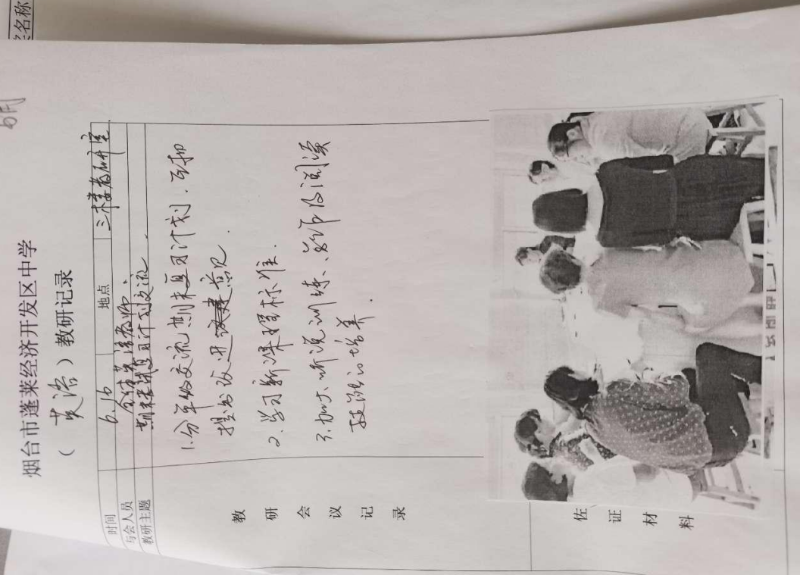 烟台市蓬莱经济开发区中学
（英语）教研记录
时间 6.16 地点 三楼教研室
与会人员 全体英语教师
教研主题 期末复习计划交流
教研会议记录
1.分年级交流期末复习计划,互相
提出改进意见.
2.学习新课程标准.
3.加大听说训练、写作及阅读
技能的培养.
佐证材料